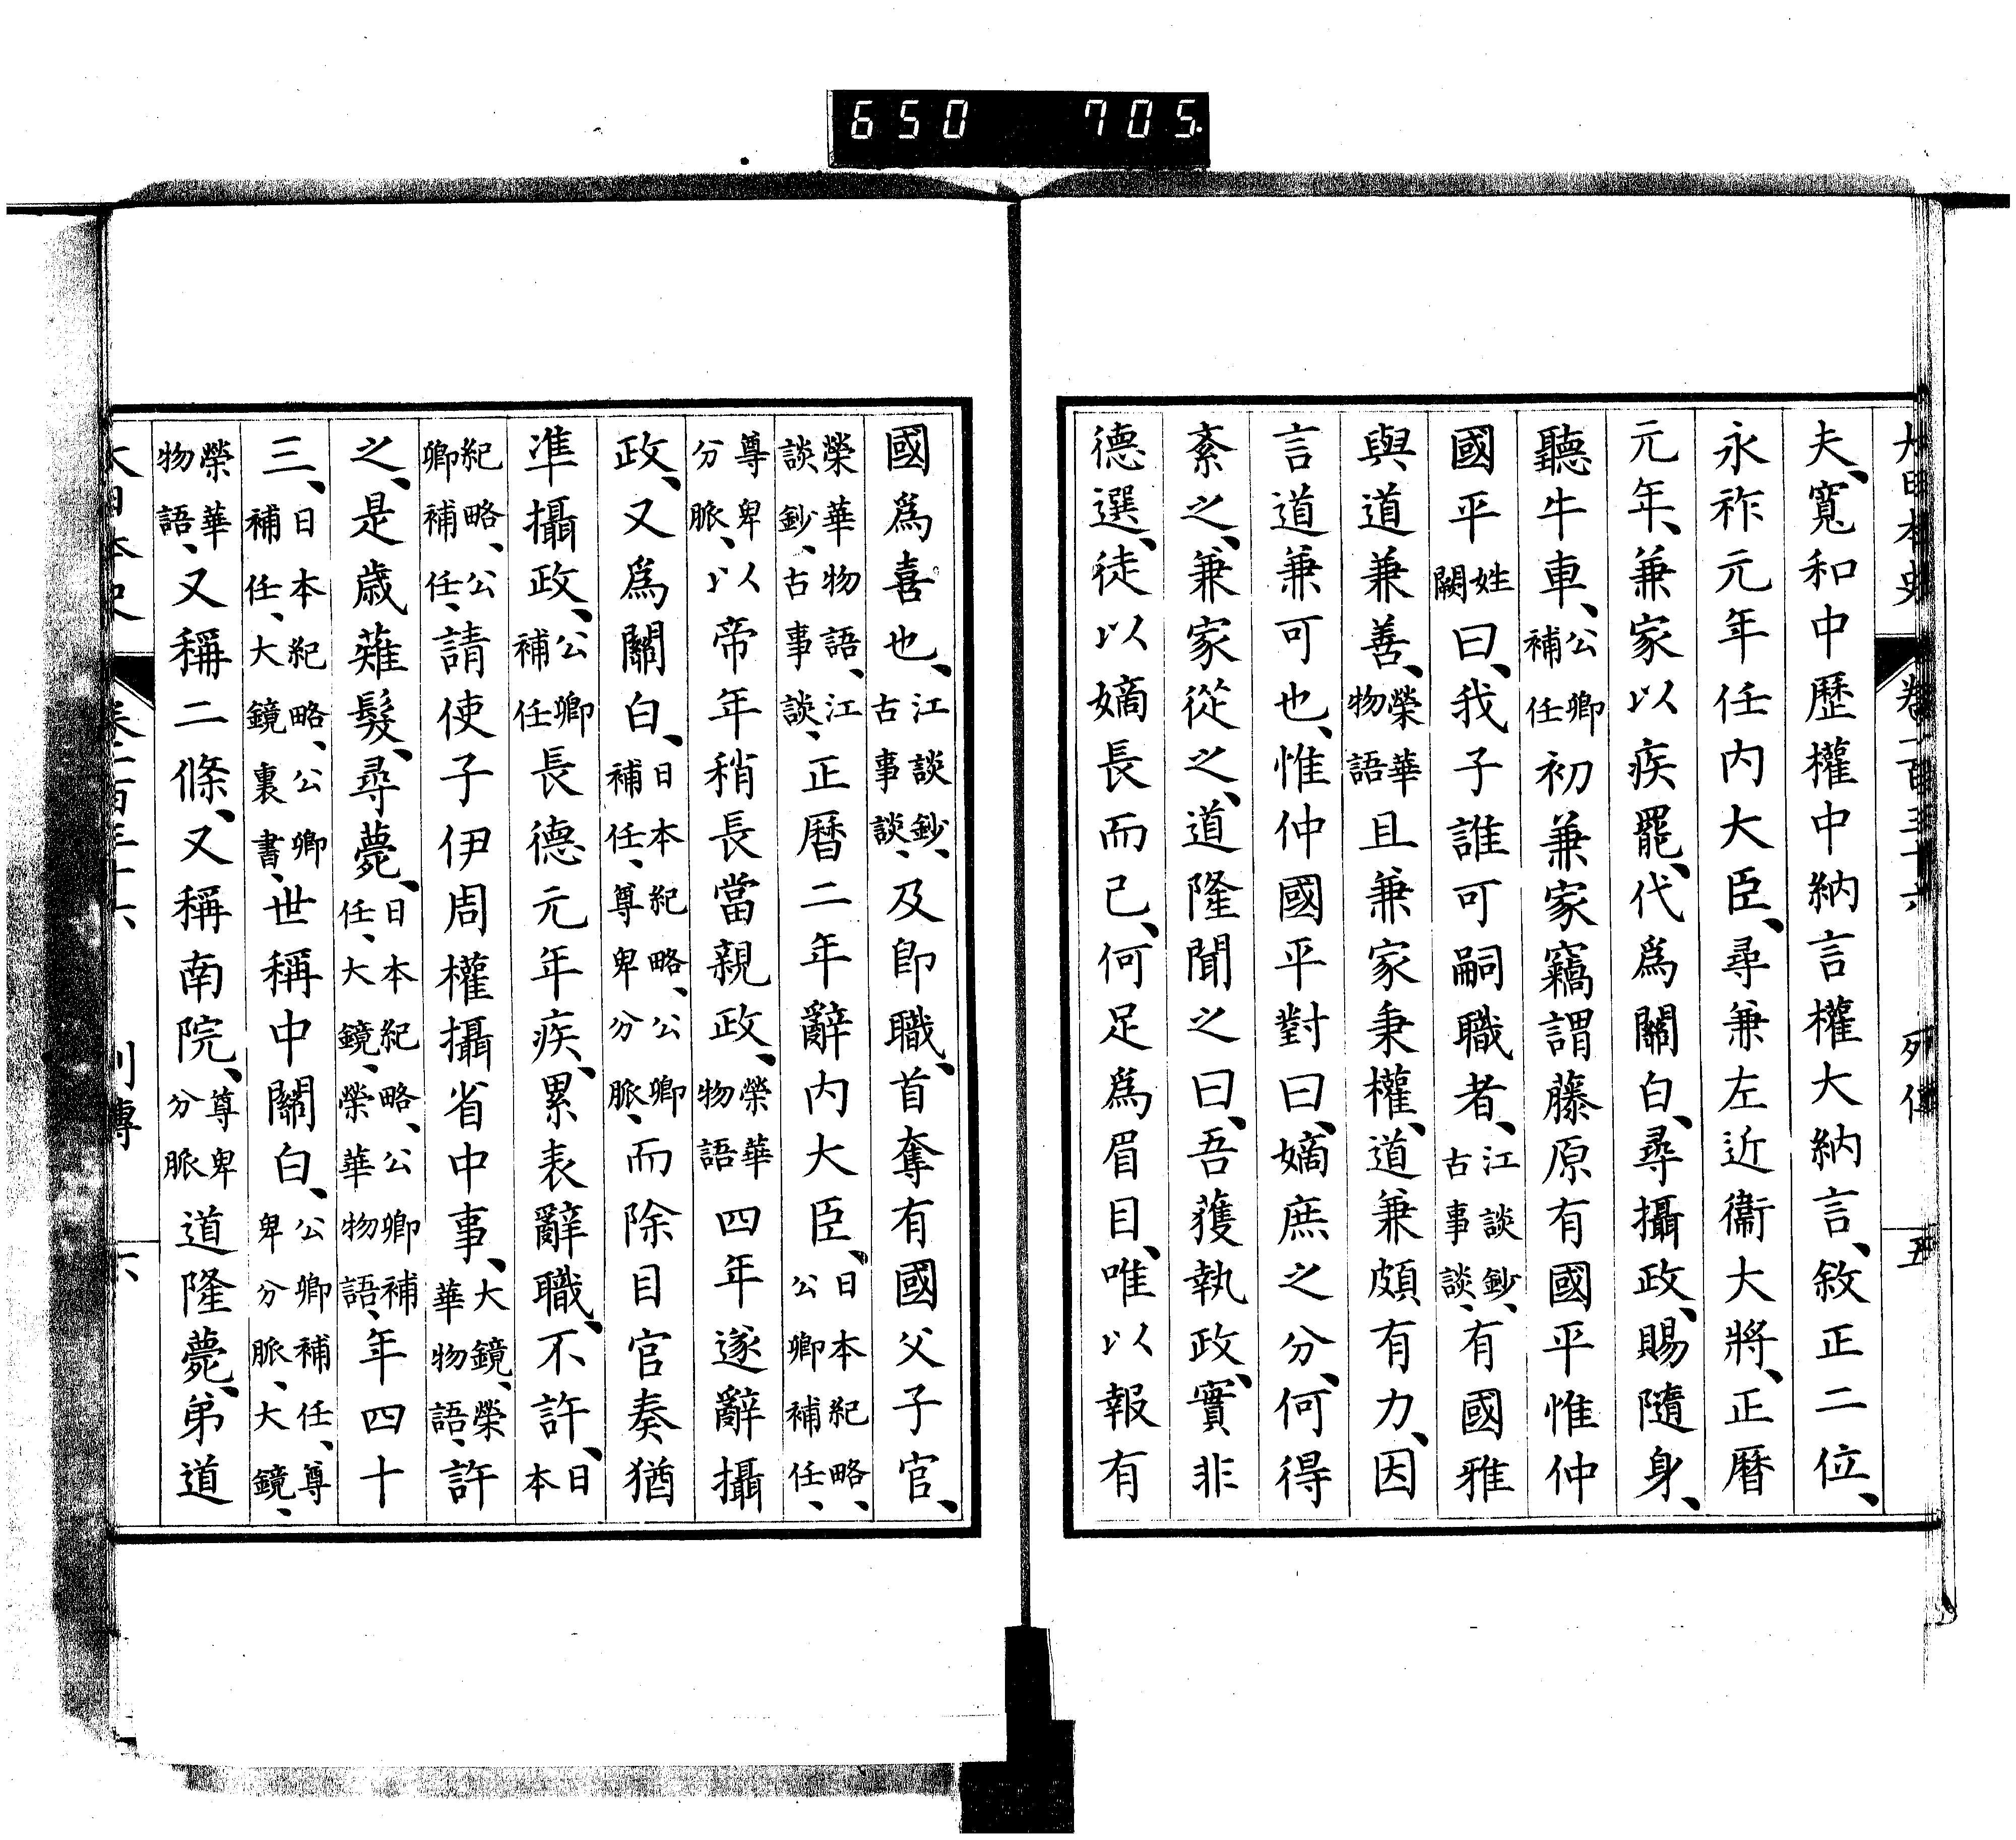 650 705.
大日本史 卷一百三十六 列傳 五
夫、寬和中歷權中納言權大納言、敘正二位、
永祚元年任内大臣、尋兼左近衞大將、正曆
元年、兼家以疾罷、代爲關白、尋攝政、賜隨身、
聽牛車、公卿補任初兼家竊謂藤原有國平惟仲
國平姓闕曰、我子誰可嗣職者、江談鈔、古事談、有國雅
與道兼善、榮華物語且兼家秉權、道兼頗有力、因
言道兼可也、惟仲國平對曰、嫡庶之分、何得
紊之、兼家從之、道隆聞之曰、吾獲執政、實非
德選、徒以嫡長而已、何足爲眉目、唯以報有
國爲喜也、江談鈔、古事談、及卽職、首奪有國父子官、
榮華物語、江談鈔、古事談、正曆二年辭内大臣、日本紀略、公卿補任、
尊卑分脈、以帝年稍長當親政、榮華物語四年遂辭攝
政、又爲關白、日本紀略、公卿補任、尊卑分脈、而除目官奏、猶
準攝政、公卿補任長德元年疾、累表辭職、不許、日本
紀略、公卿補任、請使子伊周權攝省中事、大鏡、榮華物語、許
之、是歲薙髮、尋薨、日本紀略、公卿補任、大鏡、榮華物語、年四十
三、日本紀略、公卿補任、大鏡裏書、世稱中關白、公卿補任、尊卑分脈、大鏡、
榮華物語、又稱二條、又稱南院、尊卑分脈道隆薨、弟道
大日本史 卷一百三十六 列傳 六